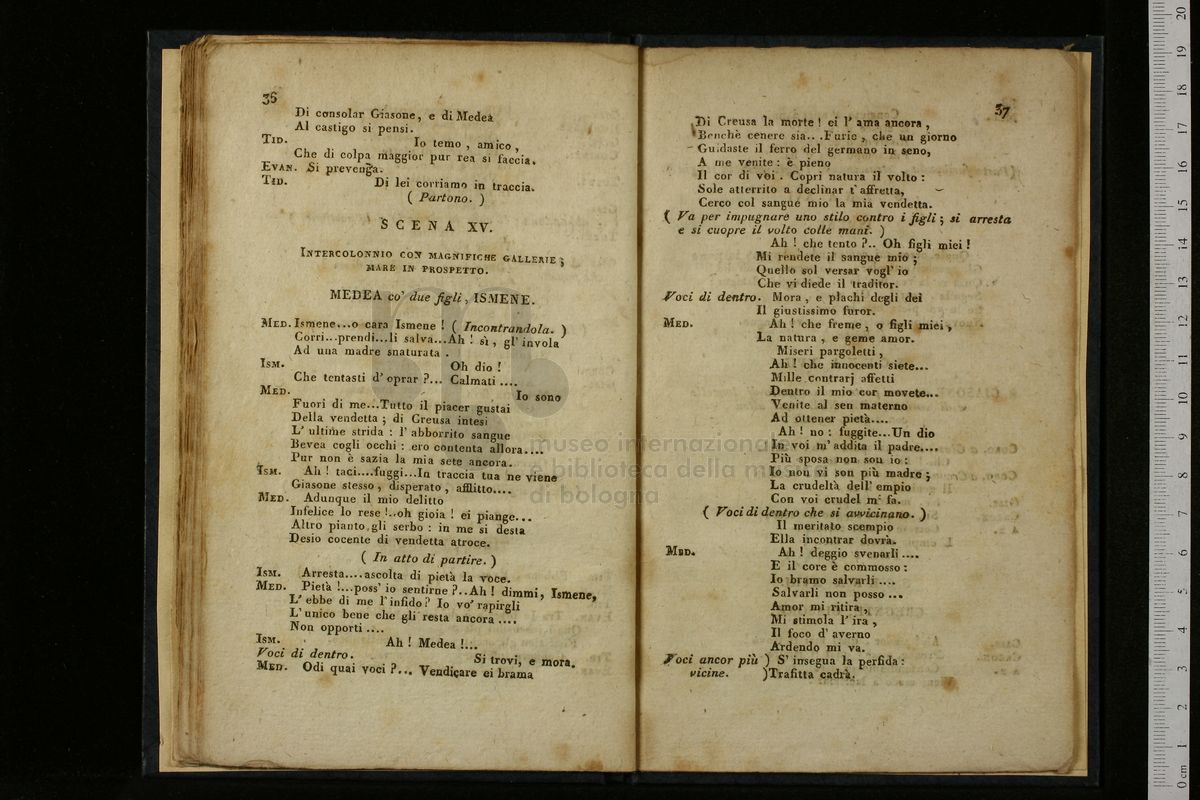 36
Di consolar Giasone, e di Medea
Al castigo si pensi.
TID. Io temo, amico,
Che di colpa maggior pur rea si faccia.
EVAN. Si prevenga.
TID. Di lei corriamo in traccia.
( Partono. )
SCENA XV.
INTERCOLONNIO CON MAGNIFICHE GALLERIE;
MARE IN PROSPETTO.
MEDEA co' due figli, ISMENE.
MED. Ismene...o cara Ismene! ( Incontrandola. )
Corri...prendi...li salva...Ah! sì, gl' invola
Ad una madre snaturata.
ISM. Oh dio!
Che tentasti d' oprar?... Calmati ....
MED. Io sono
Fuori di me...Tutto il piacer gustai
Della vendetta; di Creusa intesi
L' ultime strida: l' abborrito sangue
Bevea cogli occhi: ero contenta allora....
Pur non è sazia la mia sete ancora.
ISM. Ah! taci....fuggi...In traccia tua ne viene
Giasone stesso, disperato, afflitto....
MED. Adunque il mio delitto
Infelice lo rese!..oh gioia! ei piange...
Altro pianto gli serbo: in me si desta
Desio cocente di vendetta atroce.
( In atto di partire. )
ISM. Arresta....ascolta di pietà la voce.
MED. Pietà!...poss' io sentirne?..Ah! dimmi, Ismene,
L' ebbe di me l' infido? Io vo' rapirgli
L' unico bene che gli resta ancora ....
Non opporti ....
ISM. Ah! Medea!...
Voci di dentro. Si trovi, e mora.
MED. Odi quai voci?... Vendicare ei brama
37
Di Creusa la morte! ei l' ama ancora,
Benchè cenere sia...Furie, che un giorno
Guidaste il ferro del germano in seno,
A me venite: è pieno
Il cor di voi. Copri natura il volto:
Sole atterrito a declinar t' affretta,
Cerco col sangue mio la mia vendetta.
( Va per impugnare uno stilo contro i figli; si arresta
e si cuopre il volto colle mani. )
Ah! che tento?.. Oh figli miei!
Mi rendete il sangue mio;
Quello sol versar vogl' io
Che vi diede il traditor.
Voci di dentro. Mora, e plachi degli dei
Il giustissimo furor.
MED. Ah! che freme, o figli miei,
La natura, e geme amor.
Miseri pargoletti,
Ah! che innocenti siete...
Mille contrarj affetti
Dentro il mio cor movete...
Venite al sen materno
Ad ottener pietà....
Ah! no: fuggite...Un dio
In voi m' addita il padre....
Più sposa non son io:
Io non vi son più madre;
La crudeltà dell' empio
Con voi crudel mi fa.
( Voci di dentro che si avvicinano. )
Il meritato scempio
Ella incontrar dovrà.
MED. Ah! deggio svenarli ....
E il core è commosso:
Io bramo salvarli ....
Salvarli non posso ...
Amor mi ritira,
Mi stimola l' ira,
Il foco d' averno
Ardendo mi va.
Voci ancor più ) S' insegua la perfida:
vicine. )Trafitta cadrà.
museo internazionale
e biblioteca della musica
di bologna
0 cm 1 2 3 4 5 6 7 8 9 10 11 12 13 14 15 16 17 18 19 20